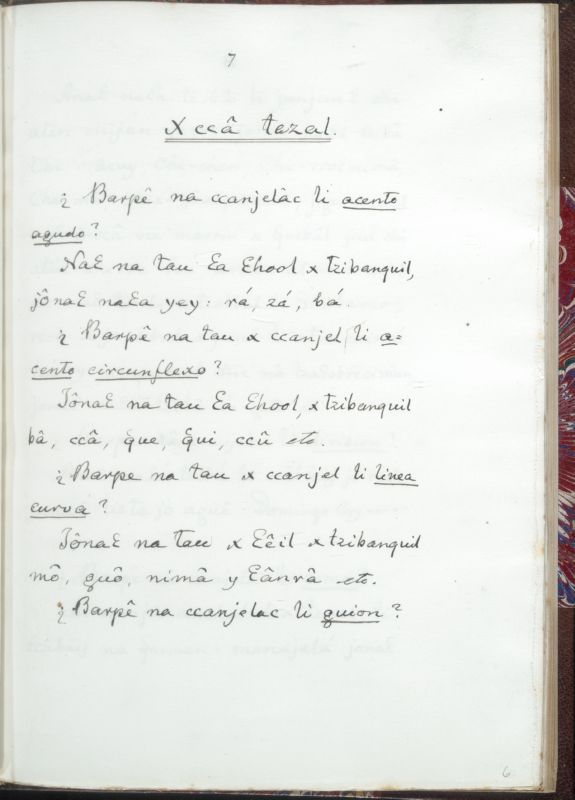 7
X ccâ tazal.
¿ Barpê na ccanjelàc li acento
agudo?
NaƐ na tau Ɛa Ɛhool x tzibanquil,
jônaƐ naƐa yey: rá, zá, bá.
¿ Barpê na tau x ccanjel li a=
cento circunflexo?
JônaƐ na tau Ɛa Ɛhool, x tzibanquil
bâ, ccâ, que, qui, ccû etc.
¿ Barpe na tau x ccanjel li linea
curva?
JônaƐ na tau x Ɛêil x tzibanquil
mô, quô, nimâ y Ɛânrâ etc.
¿ Barpê na ccanjelac li guion?
6